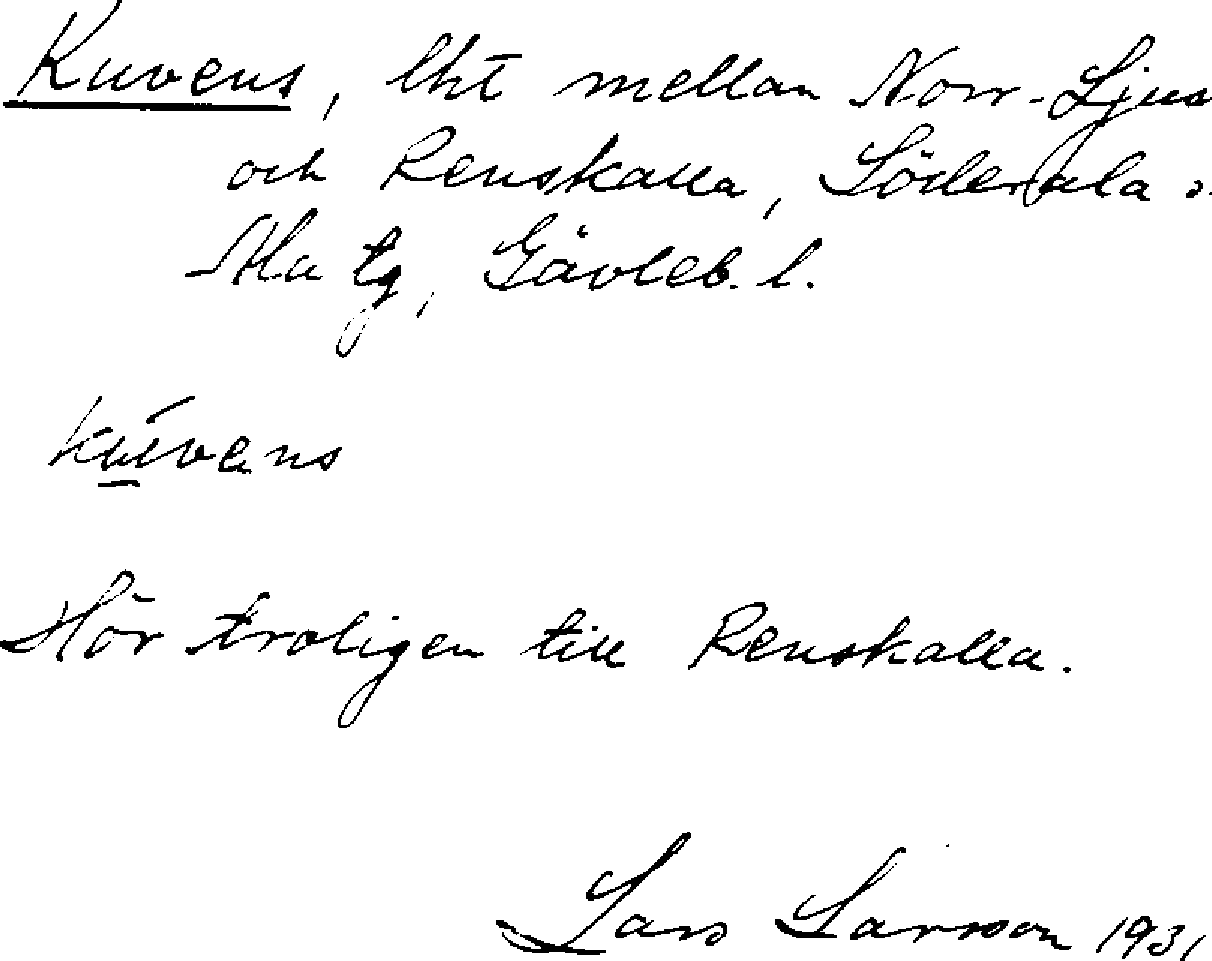 Kuvens, lht mellan Norr-Ljus
och Renskalla, Söderala s.
Ala tg, Gävleb. l.
kúvens
Hör troligen till Renskalla.
Lars Larsson 1931